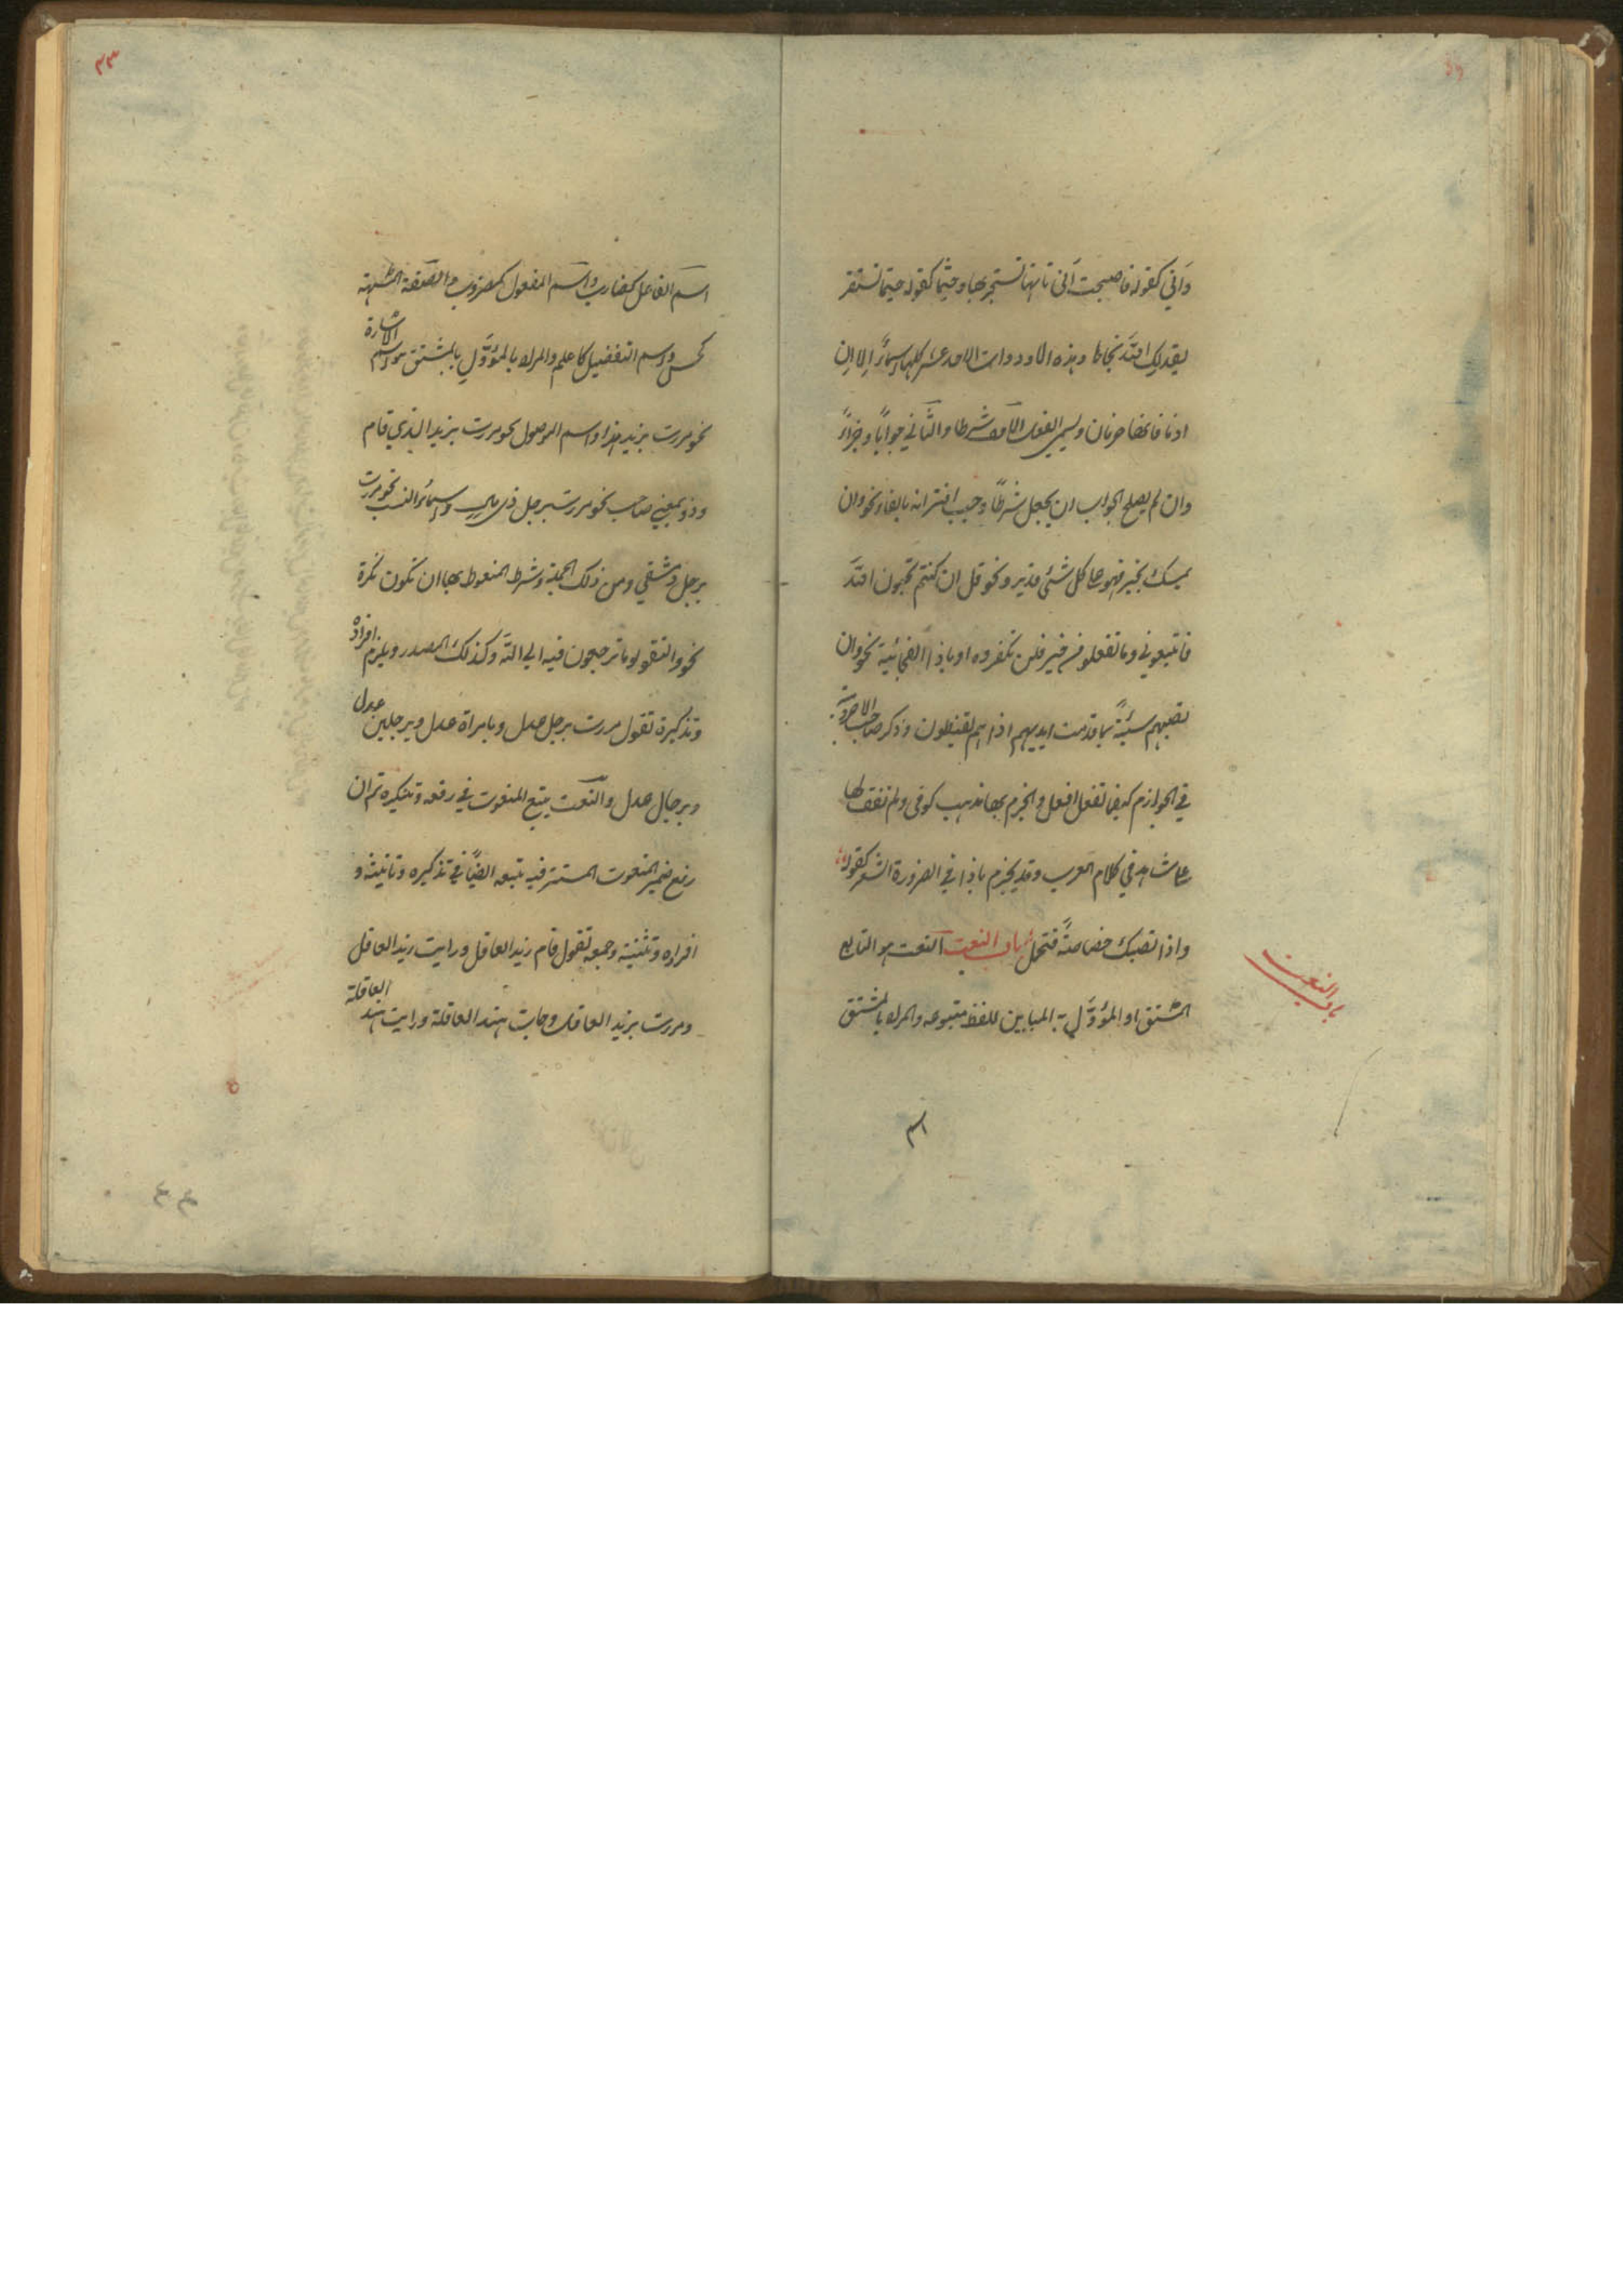 وَاَنّي كقوله فاصبحت اَنّى تاتها تستجر بها وحيثما كقوله حيثما تستقر
يقدر لك اللّه نجاحا وهذه الادوات الاحد عشر كلها اسماءٌ الا ان
اذ ما فانهما حرفان ويسمى الفعل الاول شرطا والثّاني جواباً وجزاءً
وان لم يصلح الجواب ان يجعل شرطاً وجب اقترانه بالفاء نحو وان
يمسك بخير فهو على كل شئ قدير ونحو قل ان كنتم تحبون اللّه
فاتبعوني وما تفعلو من خير فلن تكفروه او باذا الفجائية نحو وان
تصبهم سيئةٌ بما قدمت ايديهم اذا هم يقنطون وذكر صاحب الاجرومية
في الجوازم كيفما تفعل افعل والجزم بها مذهب كوفى ولم نقف لها
على شاهد في كلام العرب وقد يجزم باذا في الضرورة الشعر كقوله
واذا تصبك خصاصةٌ فتحمل باب النعت النعت هو التابع
المشتق او المؤوّل به المباين للفظ متبوعه والمراد بالمشتق
باب النعت
اسم
٣٣
اسم الفاعل كضارب واسم المفعول كمضروب والصفة المشبهة
كحسن واسم التفضيل كاعلم والمراد بالمؤوّل بالمشتق هو اسم الاشارة
نحو مررت بزيد هذا واسم الموصول نحو مررت بزيد الذي قام
وذو بمعنى صاحب نحو مررت برجل ذى مال واسماء النسب نحو مررت
برجل دمشقي ومن ذلك الجملة وشرط المنعوط بها ان تكون نكرة
نحو واتقو لوما ترجعون فيه الي اللّه وكذلك المصدر ويلزم افراده
وتذكيره تقول مررت برجل عدل وبامراة عدل وبرجلين عدل
وبرجال عدل والنعت يتبع المنعوت في رفعه وتنكيره ثم ان
رفع ضمير المنعوت المستتر فيه تبعه ايضاً في تذكيره وتانيثه و
افراده وتثنيته وجمعه تقول قام زيد العاقل ورايت زيد العاقل
ومررت بزيد العاقل وجاءت هند العاقلة ورايت هند العاقلة